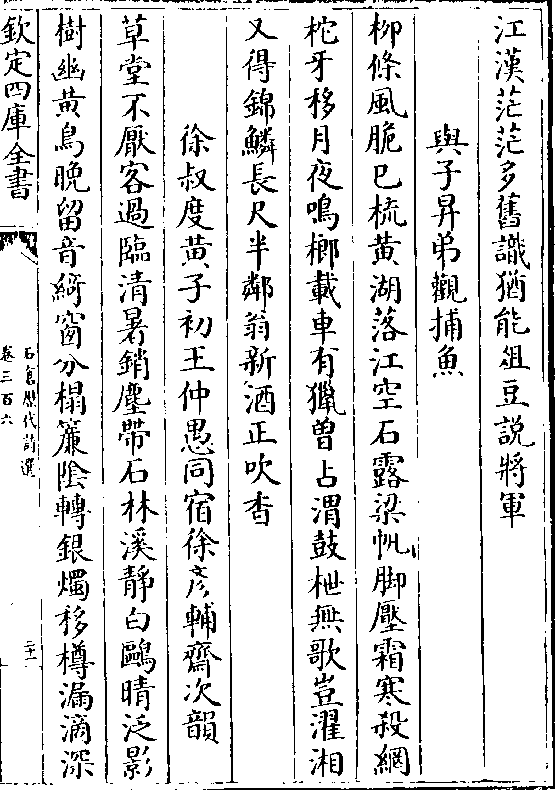 江漢茫茫多舊識猶能俎豆説將軍
與子昇弟觀捕魚
柳條風脆巳梳黄湖落江空石露梁帆脚壓霜寒殺網
柁牙移月夜鳴榔載車有獵曽占渭鼓枻無歌豈濯湘
又得錦鱗長尺半鄰翁新酒正吹杳
徐叔度黄子初王仲愚同宿徐彦輔齋次韻
草堂不厭客過臨清暑銷塵帶石林溪静白鷗晴泛影
樹幽黄鳥晚留音綺窗分榻簾陰轉銀燭移樽漏滴深
欽定四庫全書
石倉歴代詩選
卷三百六
二十一